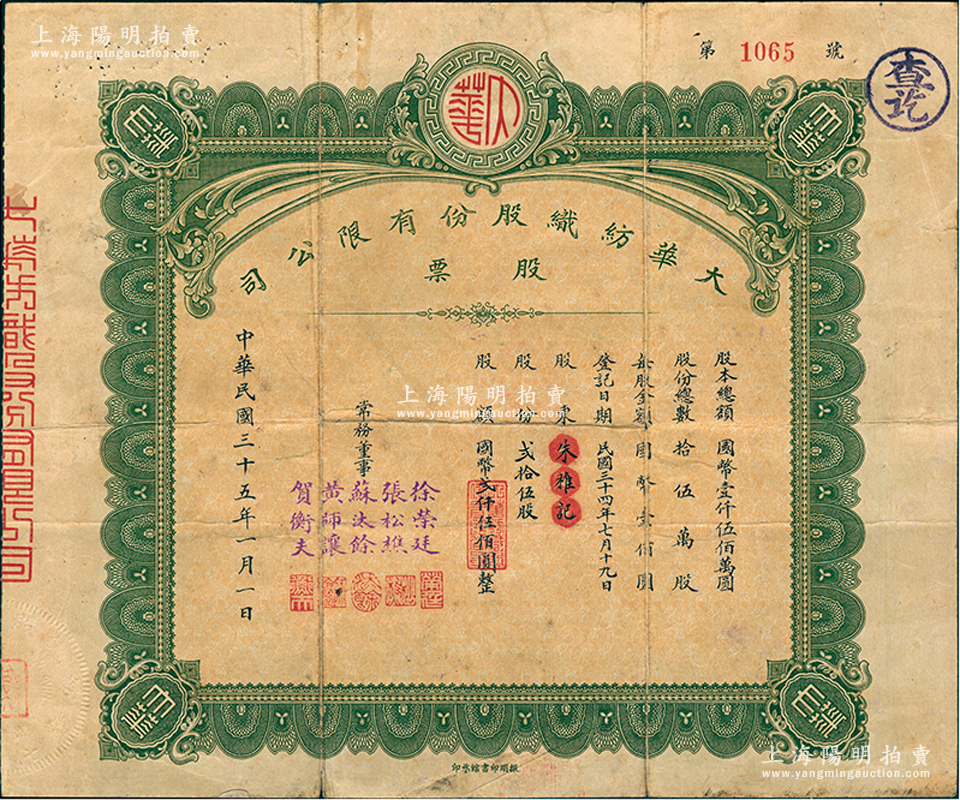 上海陽明拍賣
www.yangmingauction.com
上海陽明拍賣
www.yangmingauction.com
第 1065 號
查訖
大華
大華紡織股份有限公司
股票
股本總額 國幣壹仟伍佰萬圓
股份總數 拾伍萬股
每股金額 國幣壹佰圓
登記日期 民國三十四年七月十九日
股東 朱雅記
股份 弍拾伍股
股額 國幣弍仟伍佰圓整
常務董事
徐榮廷
張松樵
蘇汰餘
黃師讓
賀衡夫
中華民國三十五年一月一日
上海陽明拍賣
www.yangmingauction.com
上海陽明拍賣
www.yangmingauction.com
印書館承印